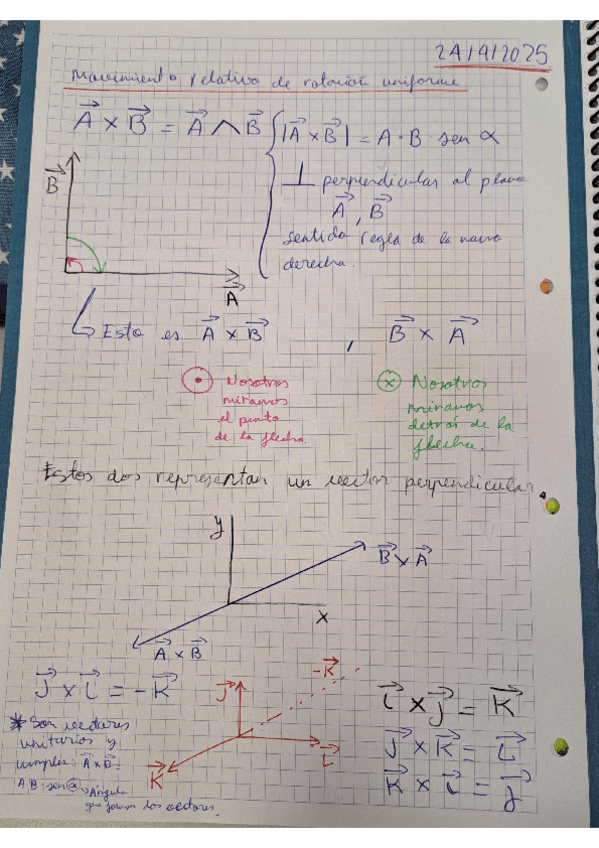 24/9/2025
Movimiento relativo de rotación uniforme
A⃗ x B⃗ = A⃗ ∧ B⃗
|A⃗ x B⃗| = A · B sen α
⊥ perpendicular al plano
A⃗, B⃗
sentido regla de la mano
derecha.
B⃗
A⃗
Esto es A⃗ x B⃗ , B⃗ x A⃗
Nosotros
miramos
el punto
de la flecha.
Nosotros
miramos
detrás de la
flecha.
Estos dos representan un vector perpendicular.
y
x
B⃗ x A⃗
A⃗ x B⃗
J⃗ x i⃗ = -K⃗
* Son vectores
unitarios y
cumplen: A⃗ x B⃗ =
A B · sen → Ángulo
que forman los vectores.
J⃗
-K⃗
i⃗
K⃗
i⃗ x j⃗ = K⃗
J⃗ x K⃗ = i⃗
K⃗ x i⃗ = j⃗